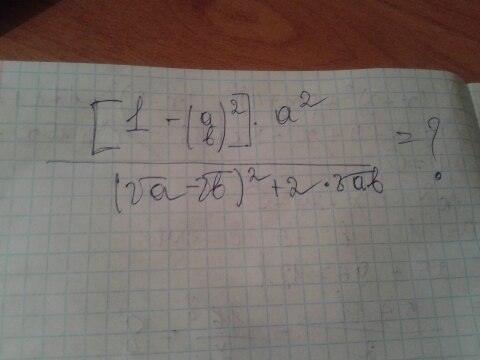 [1 - (a/b)^2] · a^2
(√a - √b)^2 + 2 · √ab
= ?